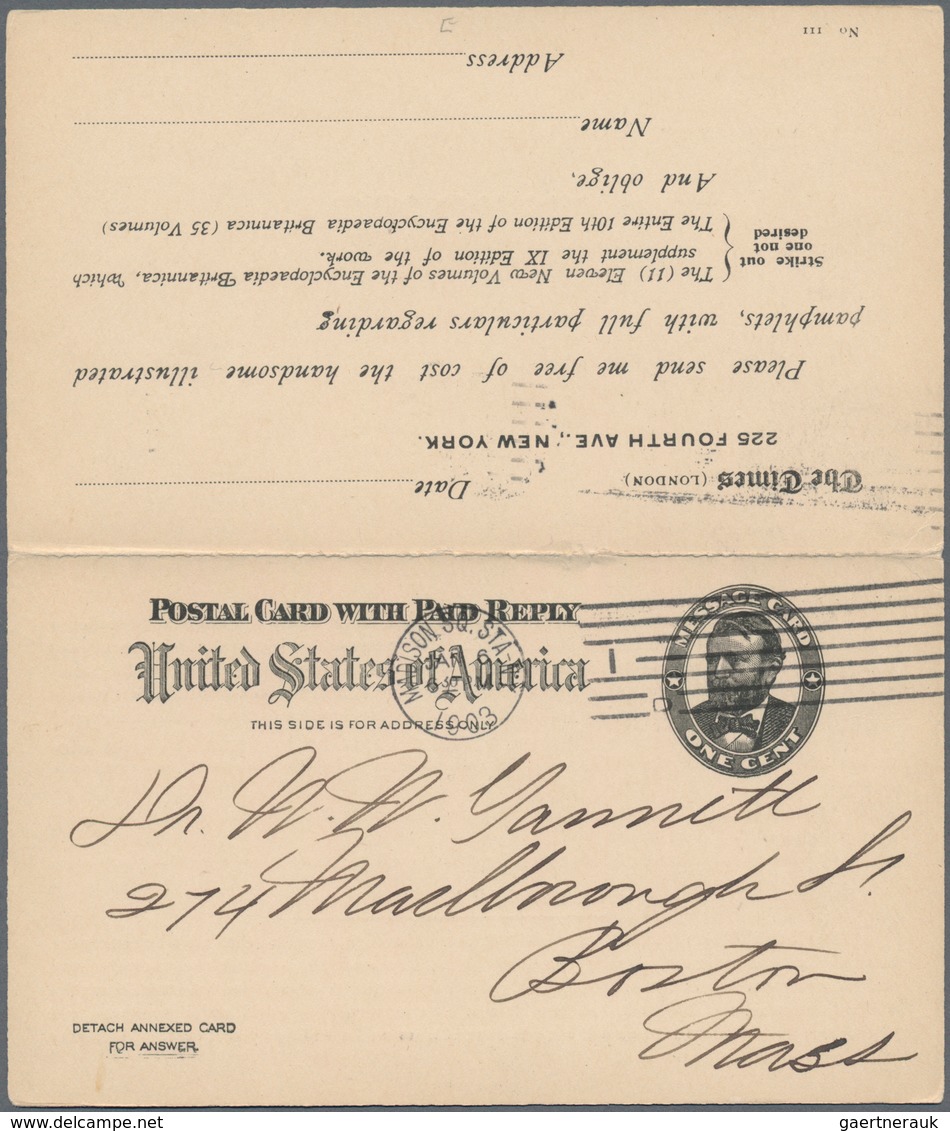 No III
Address
Name
And oblige,
Strike out
one not
desired
The (11) Eleven New Volumes of the Encyclopaedia Britannica, which
supplement the IX Edition of the work.
The Entire 10th Edition of the Encyclopaedia Britannica (35 Volumes)
pamphlets, with full particulars regarding
Please send me free of cost the handsome illustrated
225 FOURTH AVE., NEW YORK.
The Times (LONDON)
Date
POSTAL CARD WITH PAID REPLY
United States of America
THIS SIDE IS FOR ADDRESS ONLY.
MESSAGE CARD
ONE CENT
MADISON SQ. STA.
JAN 6
1903
Dr. W. W. Gannett
274 Marlborough St.
Boston
Mass
DETACH ANNEXED CARD
FOR ANSWER.
gaertnerauk